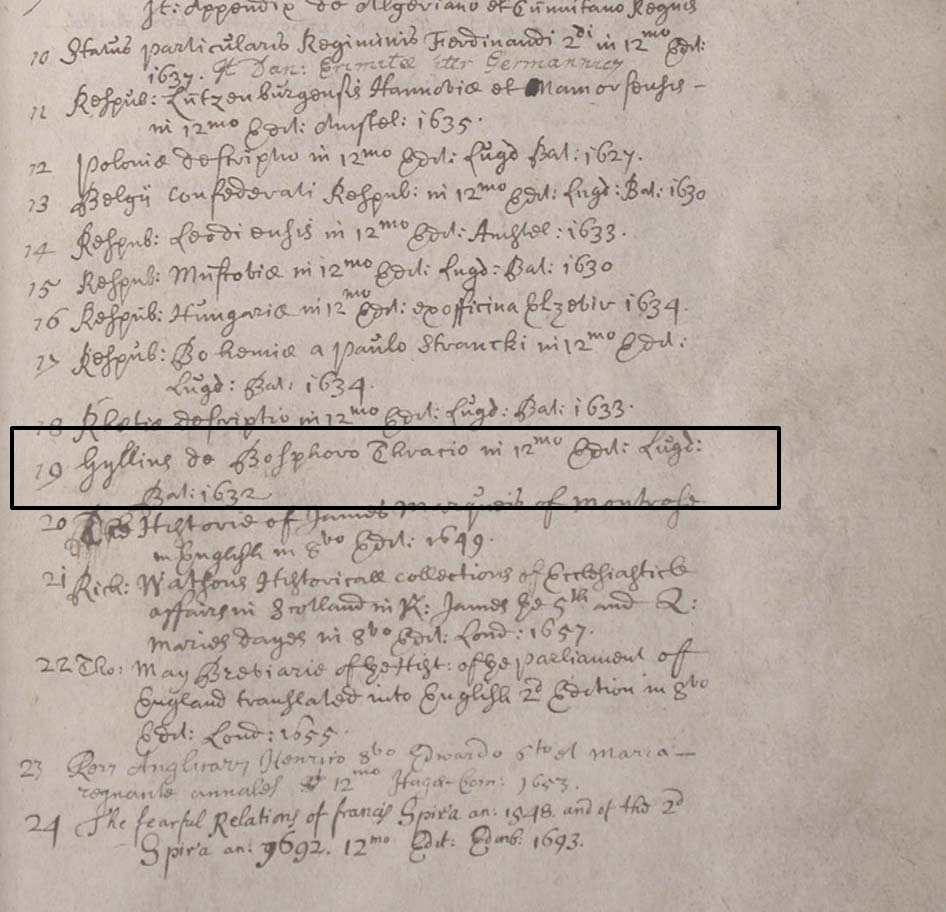 It: Appendix de Algeriano et Cunnitano Regnis
10 Status particularis Regiminis Ferdinandi 2di in 12mo Edit:
1637. It Dan: Eremitæ iter Germanicum
11 Respub: Lutzenburgensis Hannoniæ et Namorsensis -
in 12mo Edit: Amstel: 1635.
12 Poloniæ descriptio in 12mo Edit: Lugd Bat: 1627.
13 Belgij confederati Respub: in 12mo Edit: Lugd: Bat: 1630
14 Respub: Leodiensis in 12mo Edit: Amstel: 1633.
15 Respub: Muscoviæ in 12mo Edit: Lugd: Bat: 1630
16 Respub: Hungariæ in 12mo Edit: ex officina Elzevir 1634.
17 Respub: Bohemiæ a Paulo Strancki in 12mo Edit:
Lugd: Bat: 1634.
18 Rhetiæ descriptio in 12mo Edit: Lugd: Bat: 1633.
19 Gyllius de Bosphoro Thracio in 12mo Edit: Lugd:
Bat: 1632
20 The Historie of James Marqueis of Montrose
in English in 8vo Edit: 1649.
21 Rich: Watsons Historicall collections of Ecclesiastick
affairs in Scotland in K: James the 5th and Q:
Maries dayes in 8vo Edit: Lond: 1657.
22 Tho: May Breviarie of the Hist: of the parliament of
England translated into English 2d Edition in 8vo
Edit: Lond: 1655.
23 Rerum Anglicarum Henrico 8vo Edwardo 6to et Maria -
regnante annales 12mo Hagæ-Com: 1653.
24 The fearful Relations of francis Spira an: 1548. and of the 2d
Spira an: 1692. 12mo Edit: Edinb: 1693.